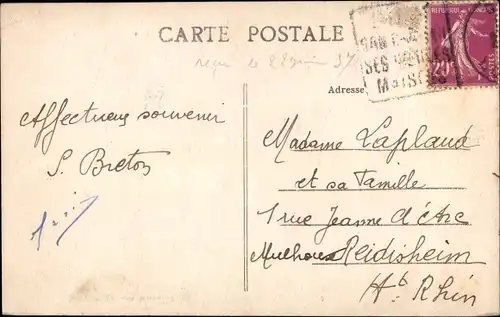 CARTE POSTALE
reçu le
37
SES
Adresse
REPUBLIQUE FRANÇAISE
20c
POSTES
Affectueux souvenir
S. Breton
Madame Laplaud
et sa famille
1 rue Jeanne d'Arc
Mulhouse Reidisheim
Ht Rhin